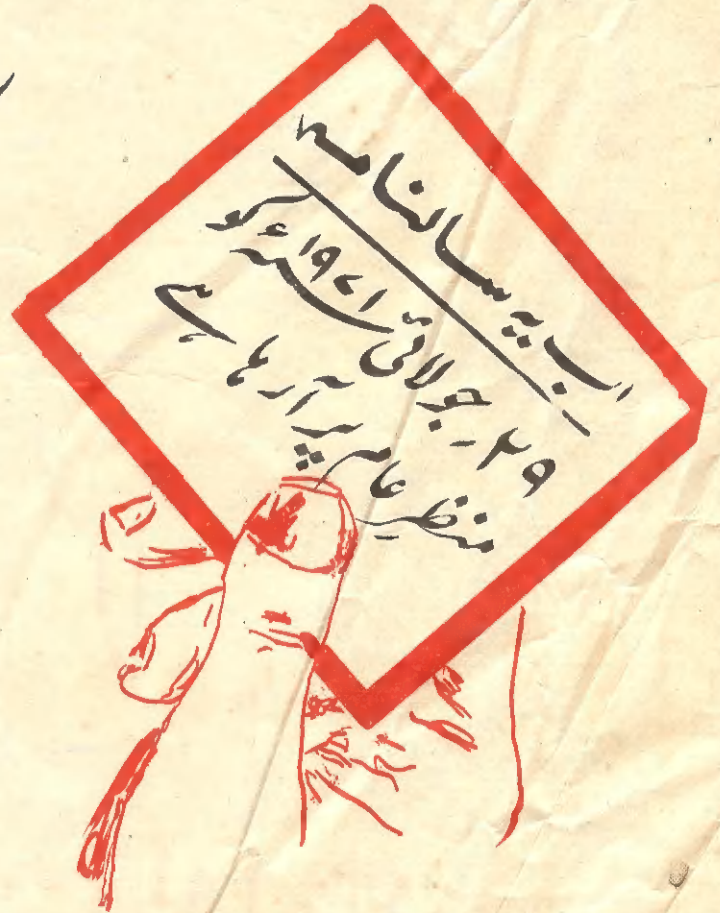 اب یہ سالنامہ
۲۹۔جولائی ۱۹۷۱ء کو
منظرِ عام پر آرہا ہے